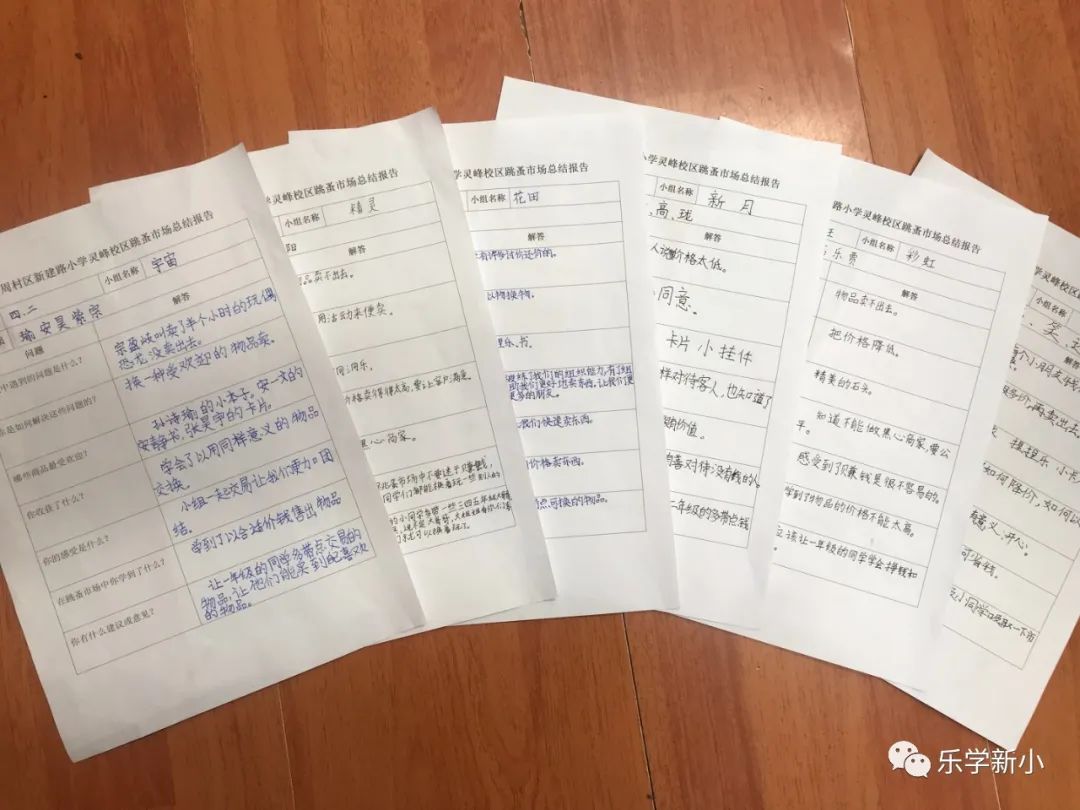 周村区新建路小学灵峰校区跳蚤市场总结报告
四.二
小组名称
宇宙
瑜 安 昊 紫 宗
问题
解答
中遇到的问题是什么?
宗盈岐叫卖了半个小时的玩偶
恐龙没卖出去。
你是如何解决这些问题的?
换一种受欢迎的物品卖。
哪些商品最受欢迎?
孙诗瑜的小本子。宋一文的
安静书,张昊宇的卡片。
你收获了什么?
学会了以用同样意义的物品
交换。
你的感受是什么?
小组一起交易让我们更加团
结。
在跳蚤市场中你学到了什么?
学到了以合适价钱售出物品
你有什么建议或意见?
让一年级的同学多带点交易的
物品,让他们能买到配喜欢
的物品。
灵峰校区跳蚤市场总结报告
小组名称
精灵
阳
解答
品卖不出去。
用活动来便卖。
价格卖得很太高,要让客户满意。
黑心商家。
校区跳蚤市场总结报告
小组名称
花田
解答
有很多讨价还价的。
以物换物。
乐、书。
我们快速卖东西。
价格卖东西。
点可换的物品。
小学灵峰校区跳蚤市场总结报告
小组名称
新月
高,珑
解答
人说价格太低。
同意。
卡片 小挂件
样对待客人,也知道了
价值。
善对待没有钱的人。
一年级的多带点钱
路小学灵峰校区跳蚤市场总结报告
小组名称
彩虹
乐 贾
解答
物品卖不出去。
把价格降低。
精美的石头。
知道不能做黑心商家,要公
平。
感受到了赚钱是很不容易的。
学到了物品的价格不能太高。
应该让一年级的同学学会挣钱和
跳蚤市场总结报告
笑,
解答
再卖出去
提提乐,小卡
如何降价,如何以
有意义,开心。
可省钱。
乐学新小